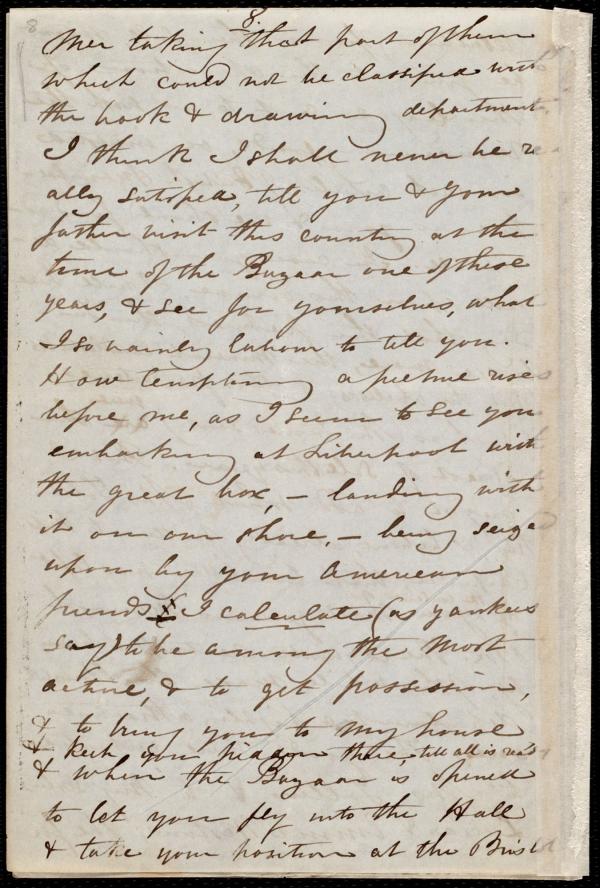 8.
8
Mer taking that part of them
which could not be classified with
the book & drawing department.
I think I shall never be re
ally satisfied, till you & your
father visit this country at the
time of the Bazaar one of these
years, & see for yourselves, what
I so vainly labour to tell you.
How tempting a picture rises
before me, as I seem to see you
embarking at Liverpool with
the great box, – landing with
it on our shore, – being seized
upon by your American
friends X (I calculate (as yankees
say) to be among the most
active, & to get possession,
& to bring you to my house
keep you hidden there, till all is ready
& when the Bazaar is opened
to let you fly into the Hall
& take your position at the Bristol